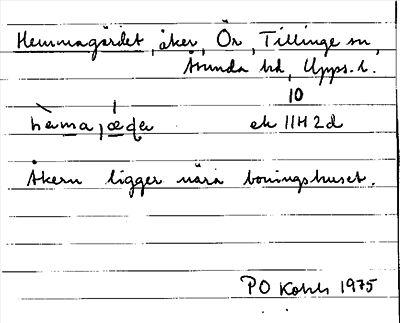 Hemmagärdet, åker, Ör, Tillinge sn,
Åsunda hd, Upps. l.
10
ek 11H2d
Åkern ligger nära boningshuset.
PO Kohls 1975